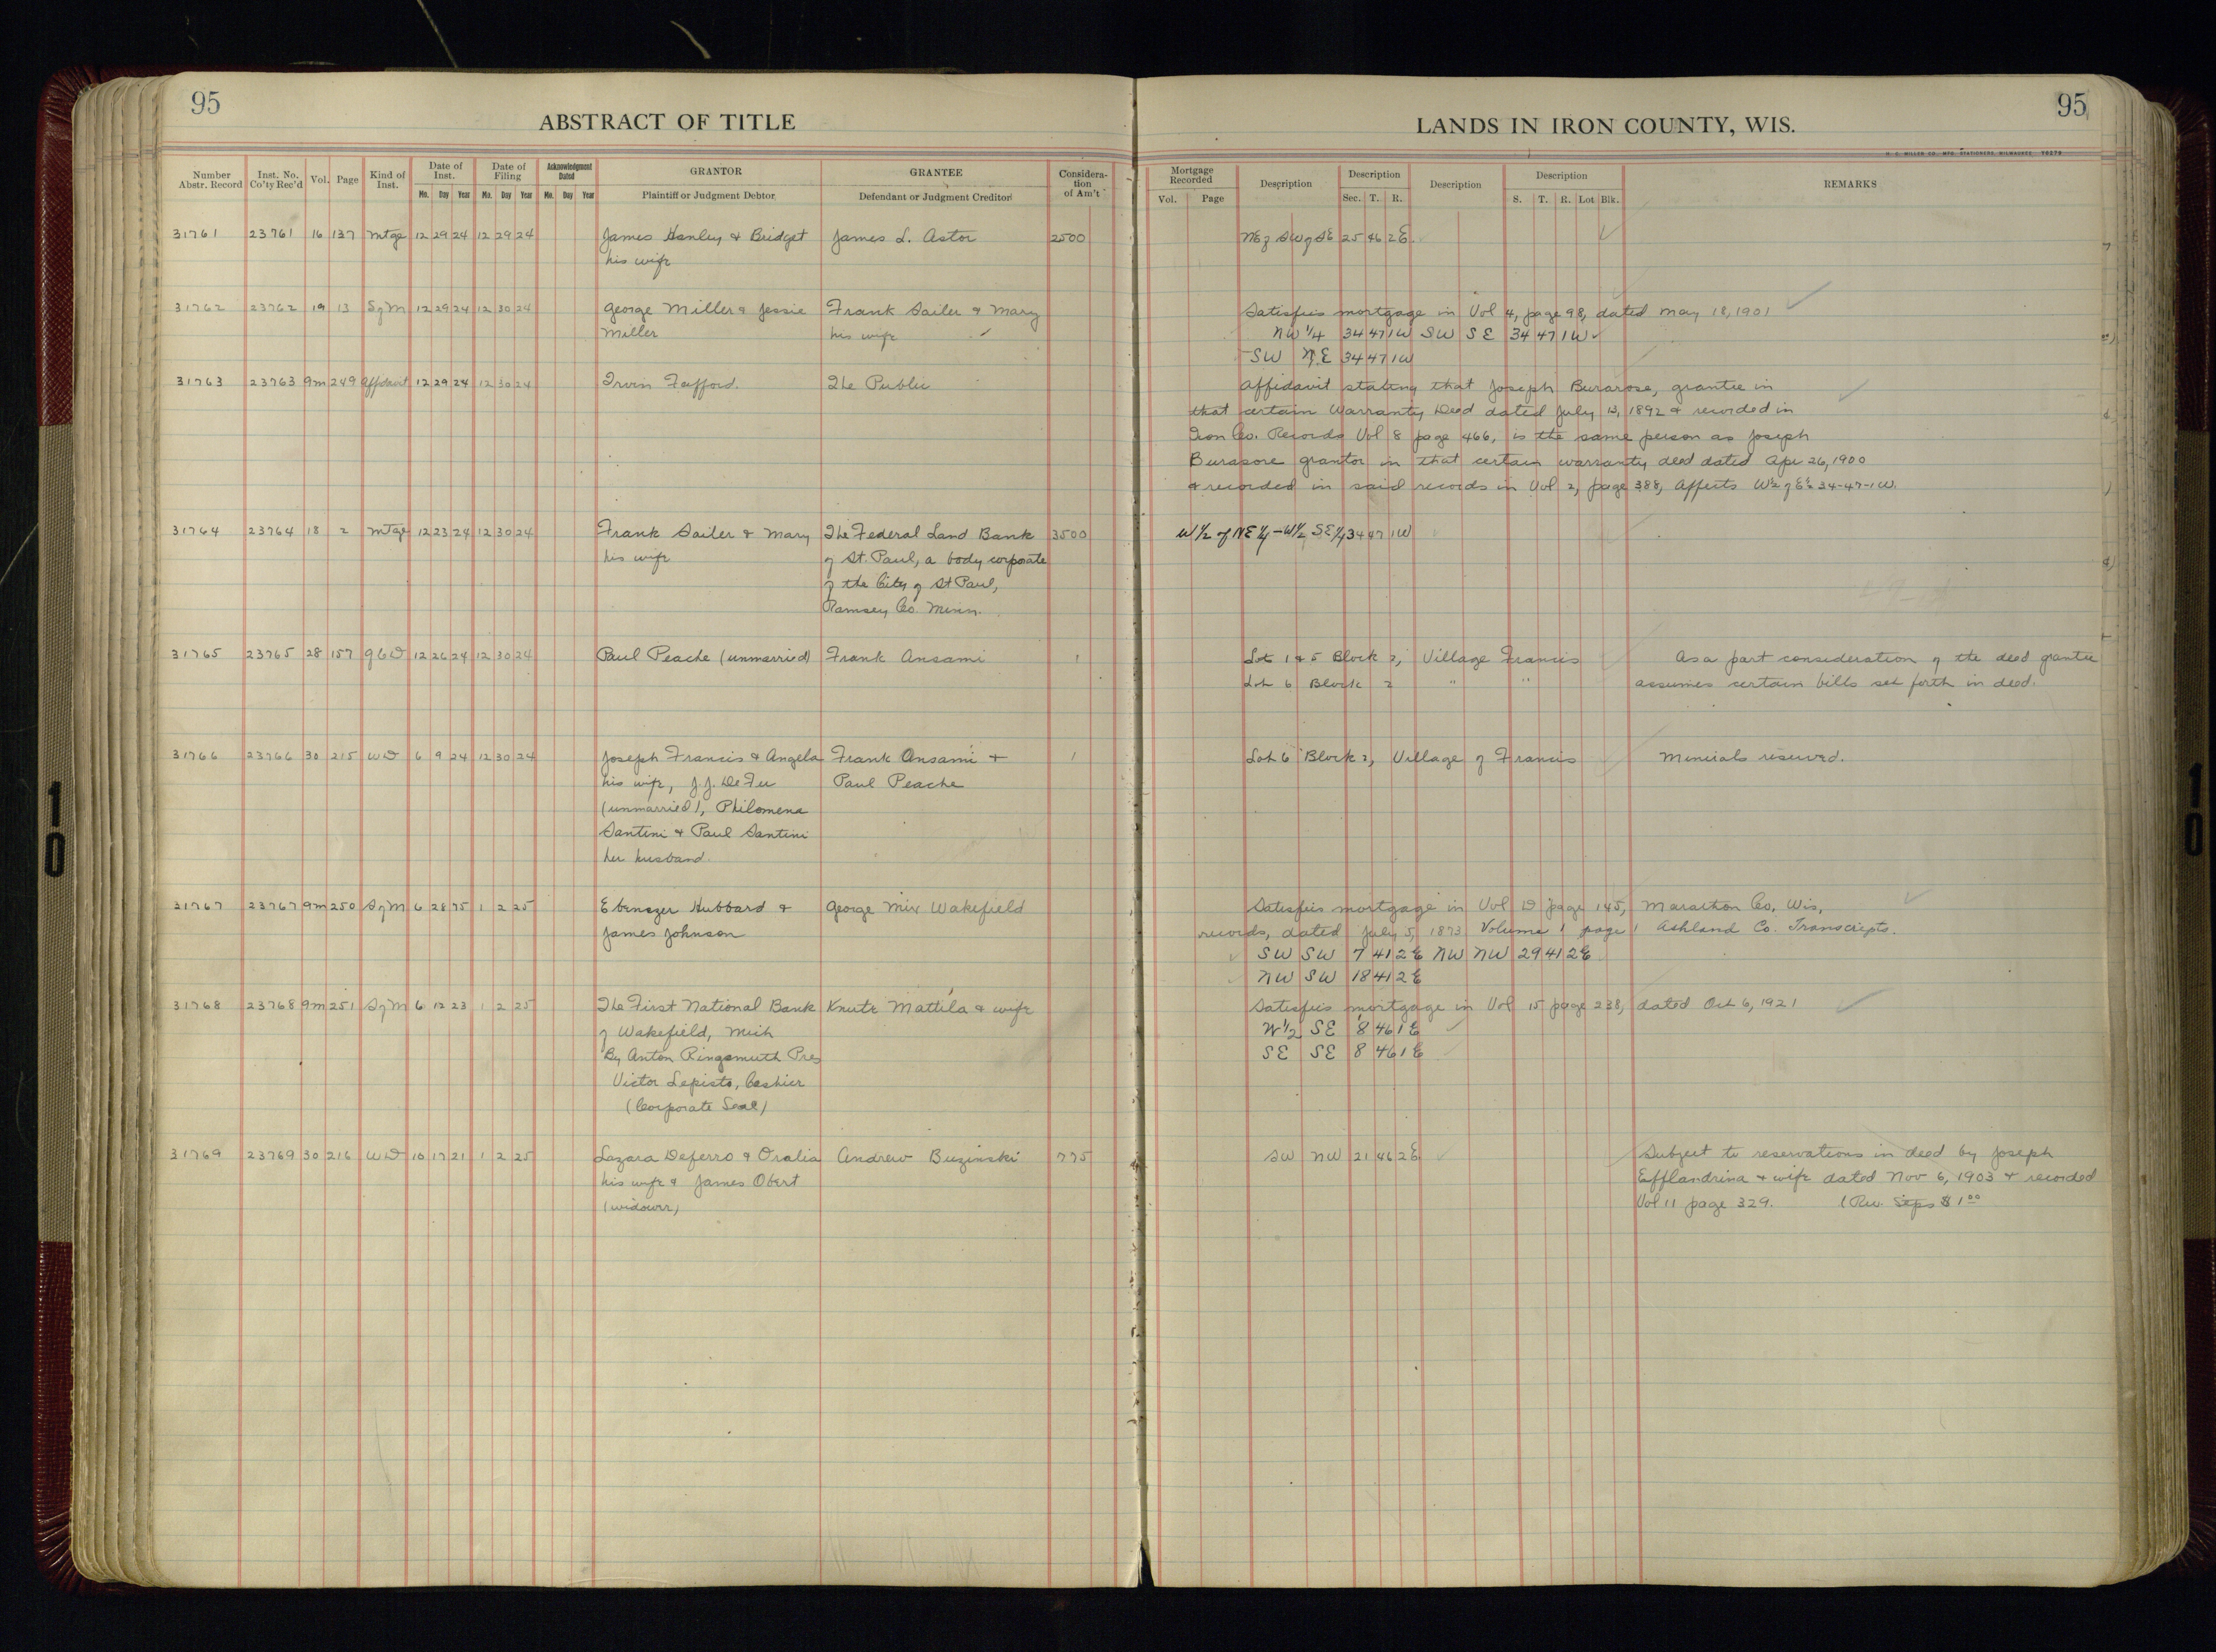 95
ABSTRACT OF TITLE
Number Abstr. Record
Inst. No. Co'ty Rec'd
Vol.
Page
Kind of Inst.
Date of Inst.
Mo. Day Year
Date of Filing
Mo. Day Year
Acknowledgment Dated
Mo. Day Year
GRANTOR
Plaintiff or Judgment Debtor
GRANTEE
Defendant or Judgment Creditor
Considera-
tion
of Am't
95
LANDS IN IRON COUNTY, WIS.
H. C. MILLER CO. MFG. STATIONERS, MILWAUKEE
Mortgage Recorded
Vol. Page
Description
Description
Sec. T. R.
Description
Description
S. T. R. Lot Blk.
REMARKS
31761 23761 16 137 Mtge 12 29 24 12 29 24 James Hanley & Bridget James L. Astor 2500 SW of SE 25 46 2E
his wife
31762 23762 19 13 S of M 12 29 24 12 30 24 George Miller & Jessie Frank Sailer & Mary Satisfies mortgage in Vol 4, page 98, dated May 18, 1901
Miller his wife NW 1/4 34 47 1W SW SE 34 47 1W
SW NE 34 47 1W
31763 23763 9m 249 Affidavit 12 29 24 12 30 24 Irvin Fafford. The Public Affidavit stating that Joseph Burarose, grantee in
that certain Warranty Deed dated July 13, 1892 & recorded in
Iron Co. Records Vol 8 page 466, is the same person as Joseph
Burasore grantor in that certain warranty deed dated Apr 26, 1900
& recorded in said records in Vol 2, page 388, Affects W½ of E½ 34-47-1W.
31764 23764 18 2 Mtge 12 23 24 12 30 24 Frank Sailer & Mary The Federal Land Bank 3500 W 1/2 of NE 1/4 - W 1/2 SE 1/4 34 47 1W
his wife of St. Paul, a body corporate
of the City of St Paul,
Ramsey Co. Minn.
31765 23765 28 157 QCD 12 26 24 12 30 24 Paul Peache (unmarried) Frank Ansami 1 Lot 1 & 5 Block 2, Village Francis As a part consideration of the deed grantee
Lot 6 Block 2 " " assumes certain bills set forth in deed.
31766 23766 30 215 WD 6 9 24 12 30 24 Joseph Francis & Angela Frank Ansami + 1 Lot 6 Block 2, Village of Francis Minerals reserved.
his wife, J.J. DeFer Paul Peache
(unmarried), Philomena
Santini & Paul Santini
her husband.
31767 23767 9m 250 S of M 6 28 75 1 2 25 Ebenezer Hubbard & George Mix Wakefield Satisfies mortgage in Vol D page 145, Marathon Co, Wis,
James Johnson records, dated July 5, 1873 Volume 1 page 1 Ashland Co. Transcripts.
SW SW 7 41 2E NW NW 29 41 2E
NW SW 18 41 2E
31768 23768 9m 251 S of M 6 12 23 1 2 25 The First National Bank Knute Mattila & wife Satisfies mortgage in Vol 15 page 238, dated Oct 6, 1921
of Wakefield, Mich W 1/2 SE 8 46 1E
By Anton Ringsmuth Pres SE SE 8 46 1E
Victor Lepisto, Cashier
(Corporate Seal)
31769 23769 30 216 WD 10 17 21 1 2 25 Lazara Deferro & Oralia Andrew Buzinski 775 SW NW 21 46 2E Subject to reservations in deed by Joseph
his wife & James Obert Efflandrina & wife dated Nov 6, 1903 & recorded
(widower) Vol 11 page 329. (Rev. Stps $1 00
10
10